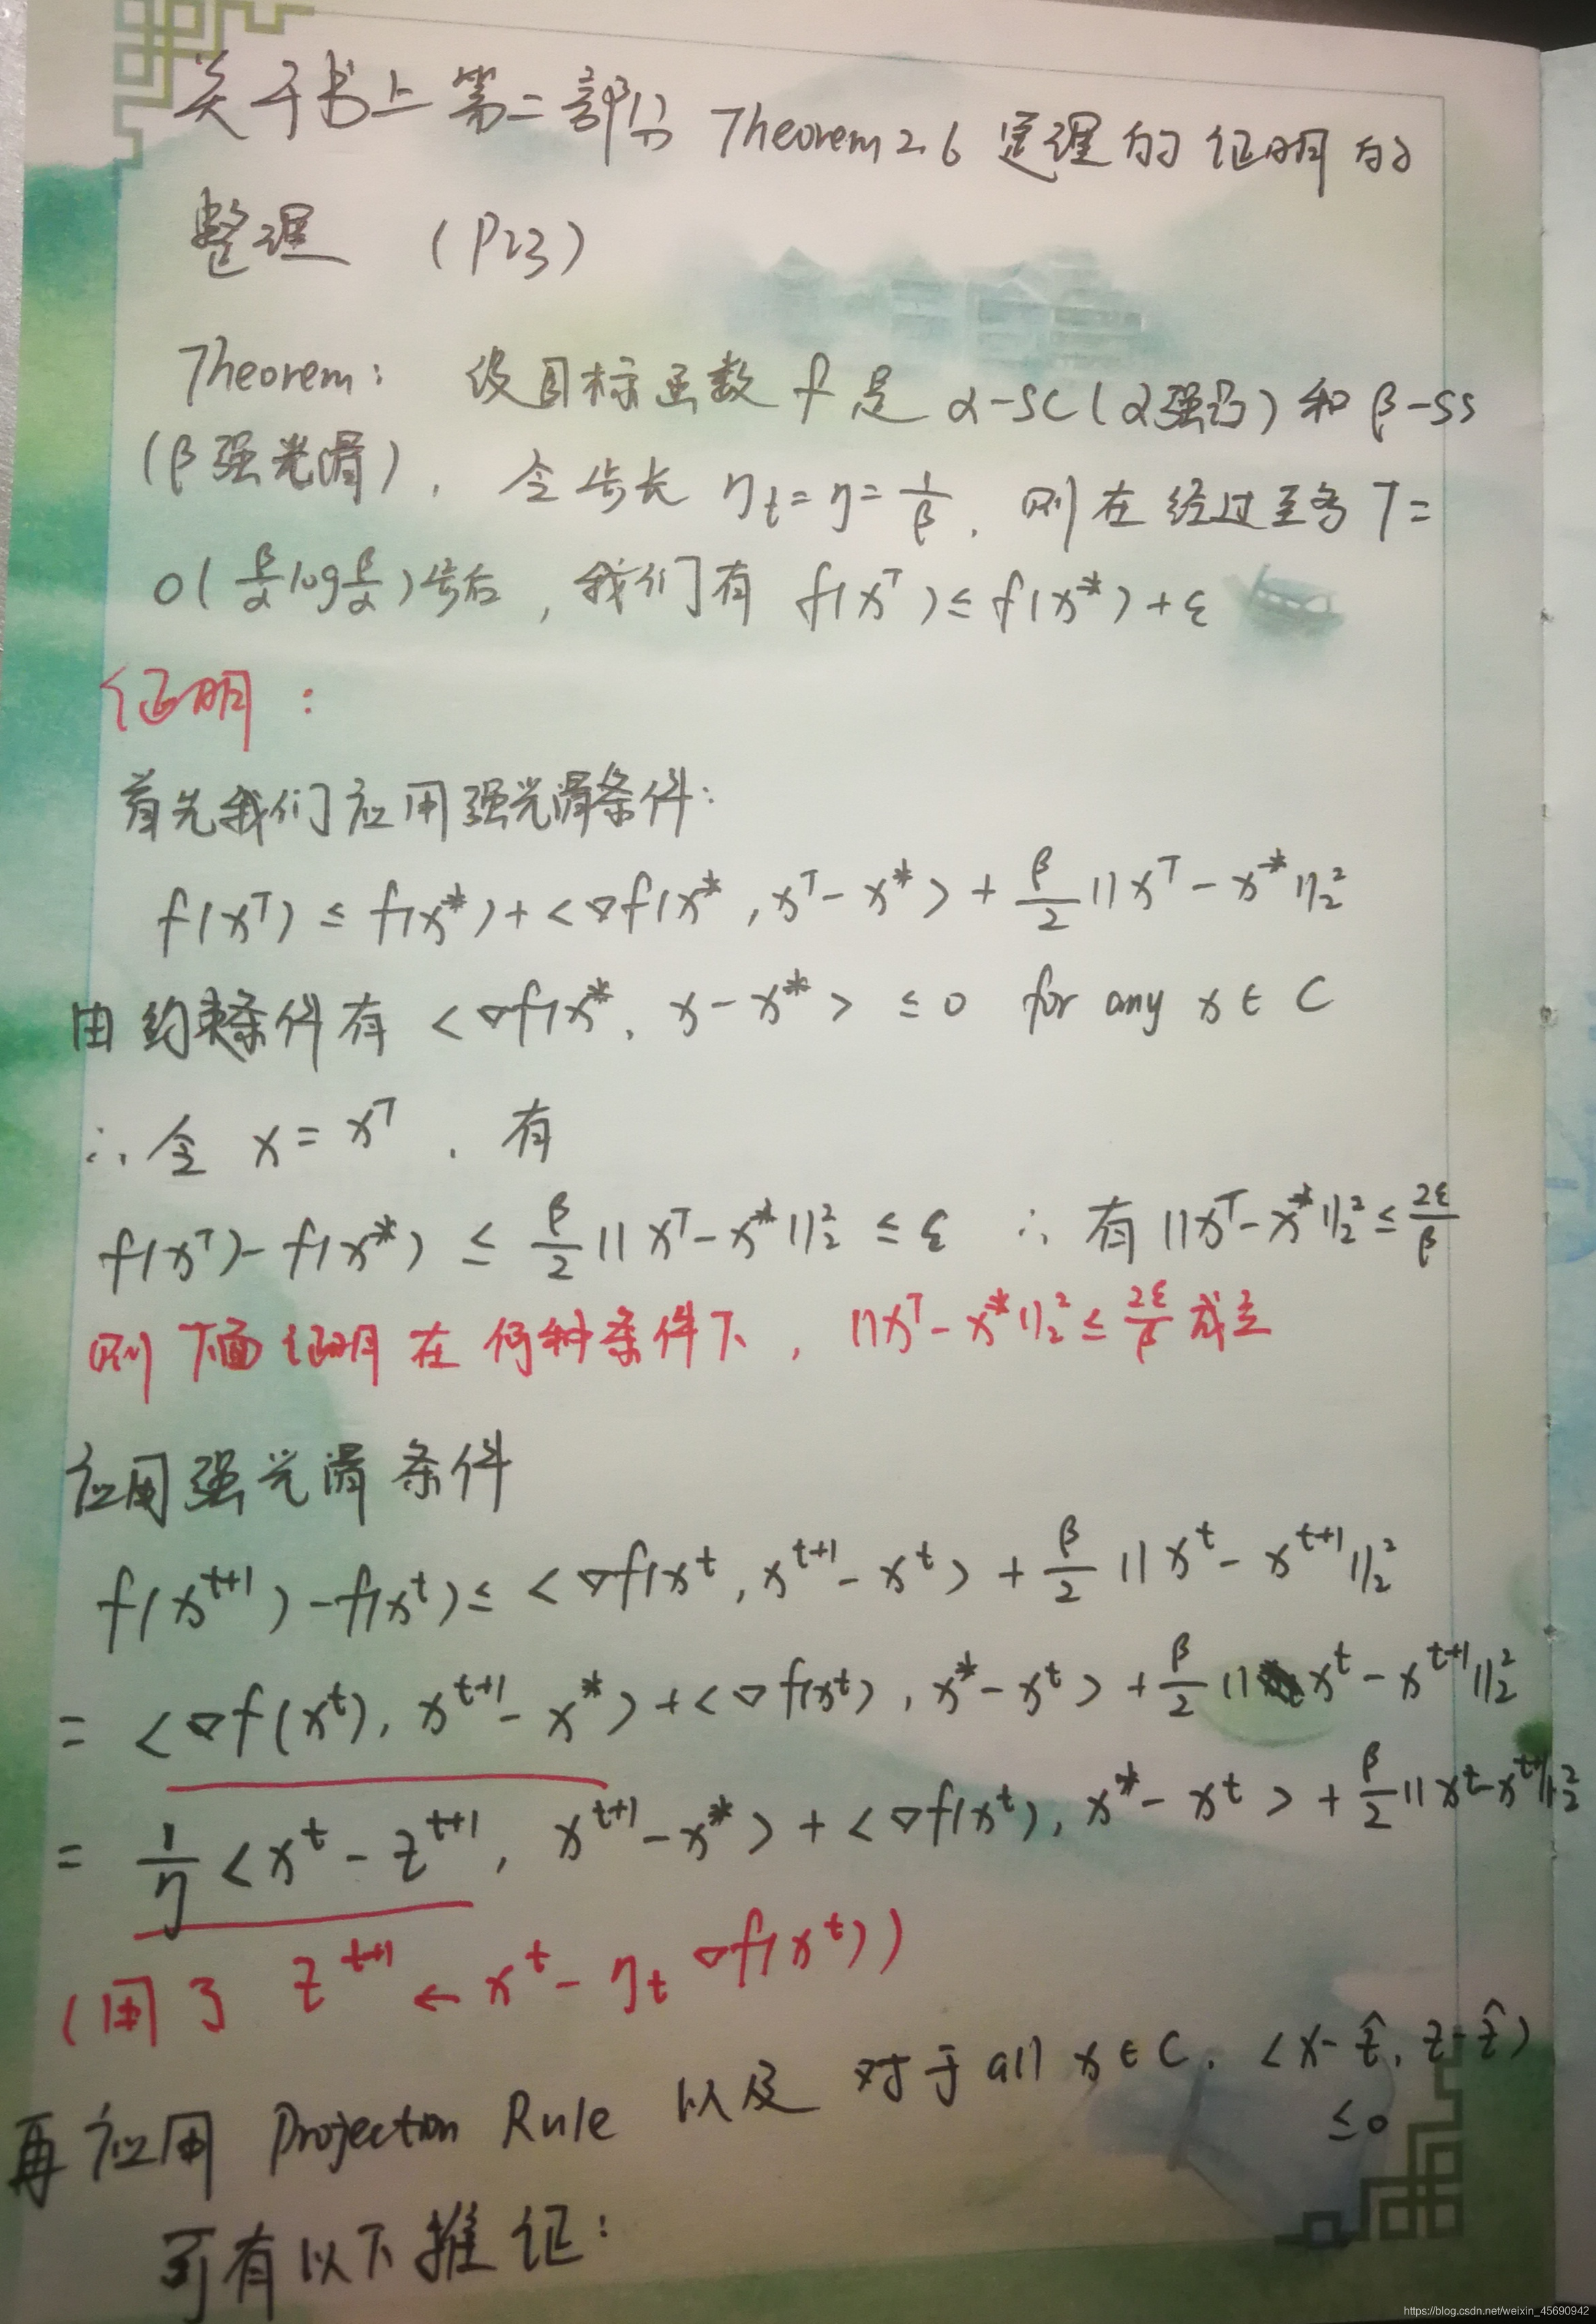 关于书上第二部分 Theorem 2.6 定理的证明的
整理 (P23)
Theorem: 设目标函数 f 是 α-SC(α强凸) 和 β-SS
(β强光滑), 令步长 η_t = η = 1/β, 则在经过至多 T =
O(β/α log β/α)步后, 我们有 f(x^T) ≤ f(x^*) + ε
证明:
首先我们应用强光滑条件:
f(x^T) ≤ f(x^*) + <∇f(x^*, x^T - x^*> + β/2 ||x^T - x^*||_2^2
由约束条件有 <∇f(x^*, x - x^*> ≤ 0 for any x ∈ C
∴ 令 x = x^T, 有
f(x^T) - f(x^*) ≤ β/2 ||x^T - x^*||_2^2 ≤ ε ∴ 有 ||x^T - x^*||_2^2 ≤ 2ε/β
则下面证明在何种条件下, ||x^T - x^*||_2^2 ≤ 2ε/β 成立
应用强光滑条件
f(x^{t+1}) - f(x^t) ≤ <∇f(x^t, x^{t+1} - x^t> + β/2 ||x^t - x^{t+1}||_2^2
= <∇f(x^t), x^{t+1} - x^*> + <∇f(x^t), x^* - x^t> + β/2 ||x^t - x^{t+1}||_2^2
= 1/η <x^t - z^{t+1}, x^{t+1} - x^*> + <∇f(x^t), x^* - x^t> + β/2 ||x^t - x^{t+1}||_2^2
(用了 z^{t+1} ← x^t - η_t ∇f(x^t))
再应用 Projection Rule 以及 对于 all x ∈ C. <x - ẑ, z - ẑ>
≤ 0
可有以下推证:
https://blog.csdn.net/weixin_45690942